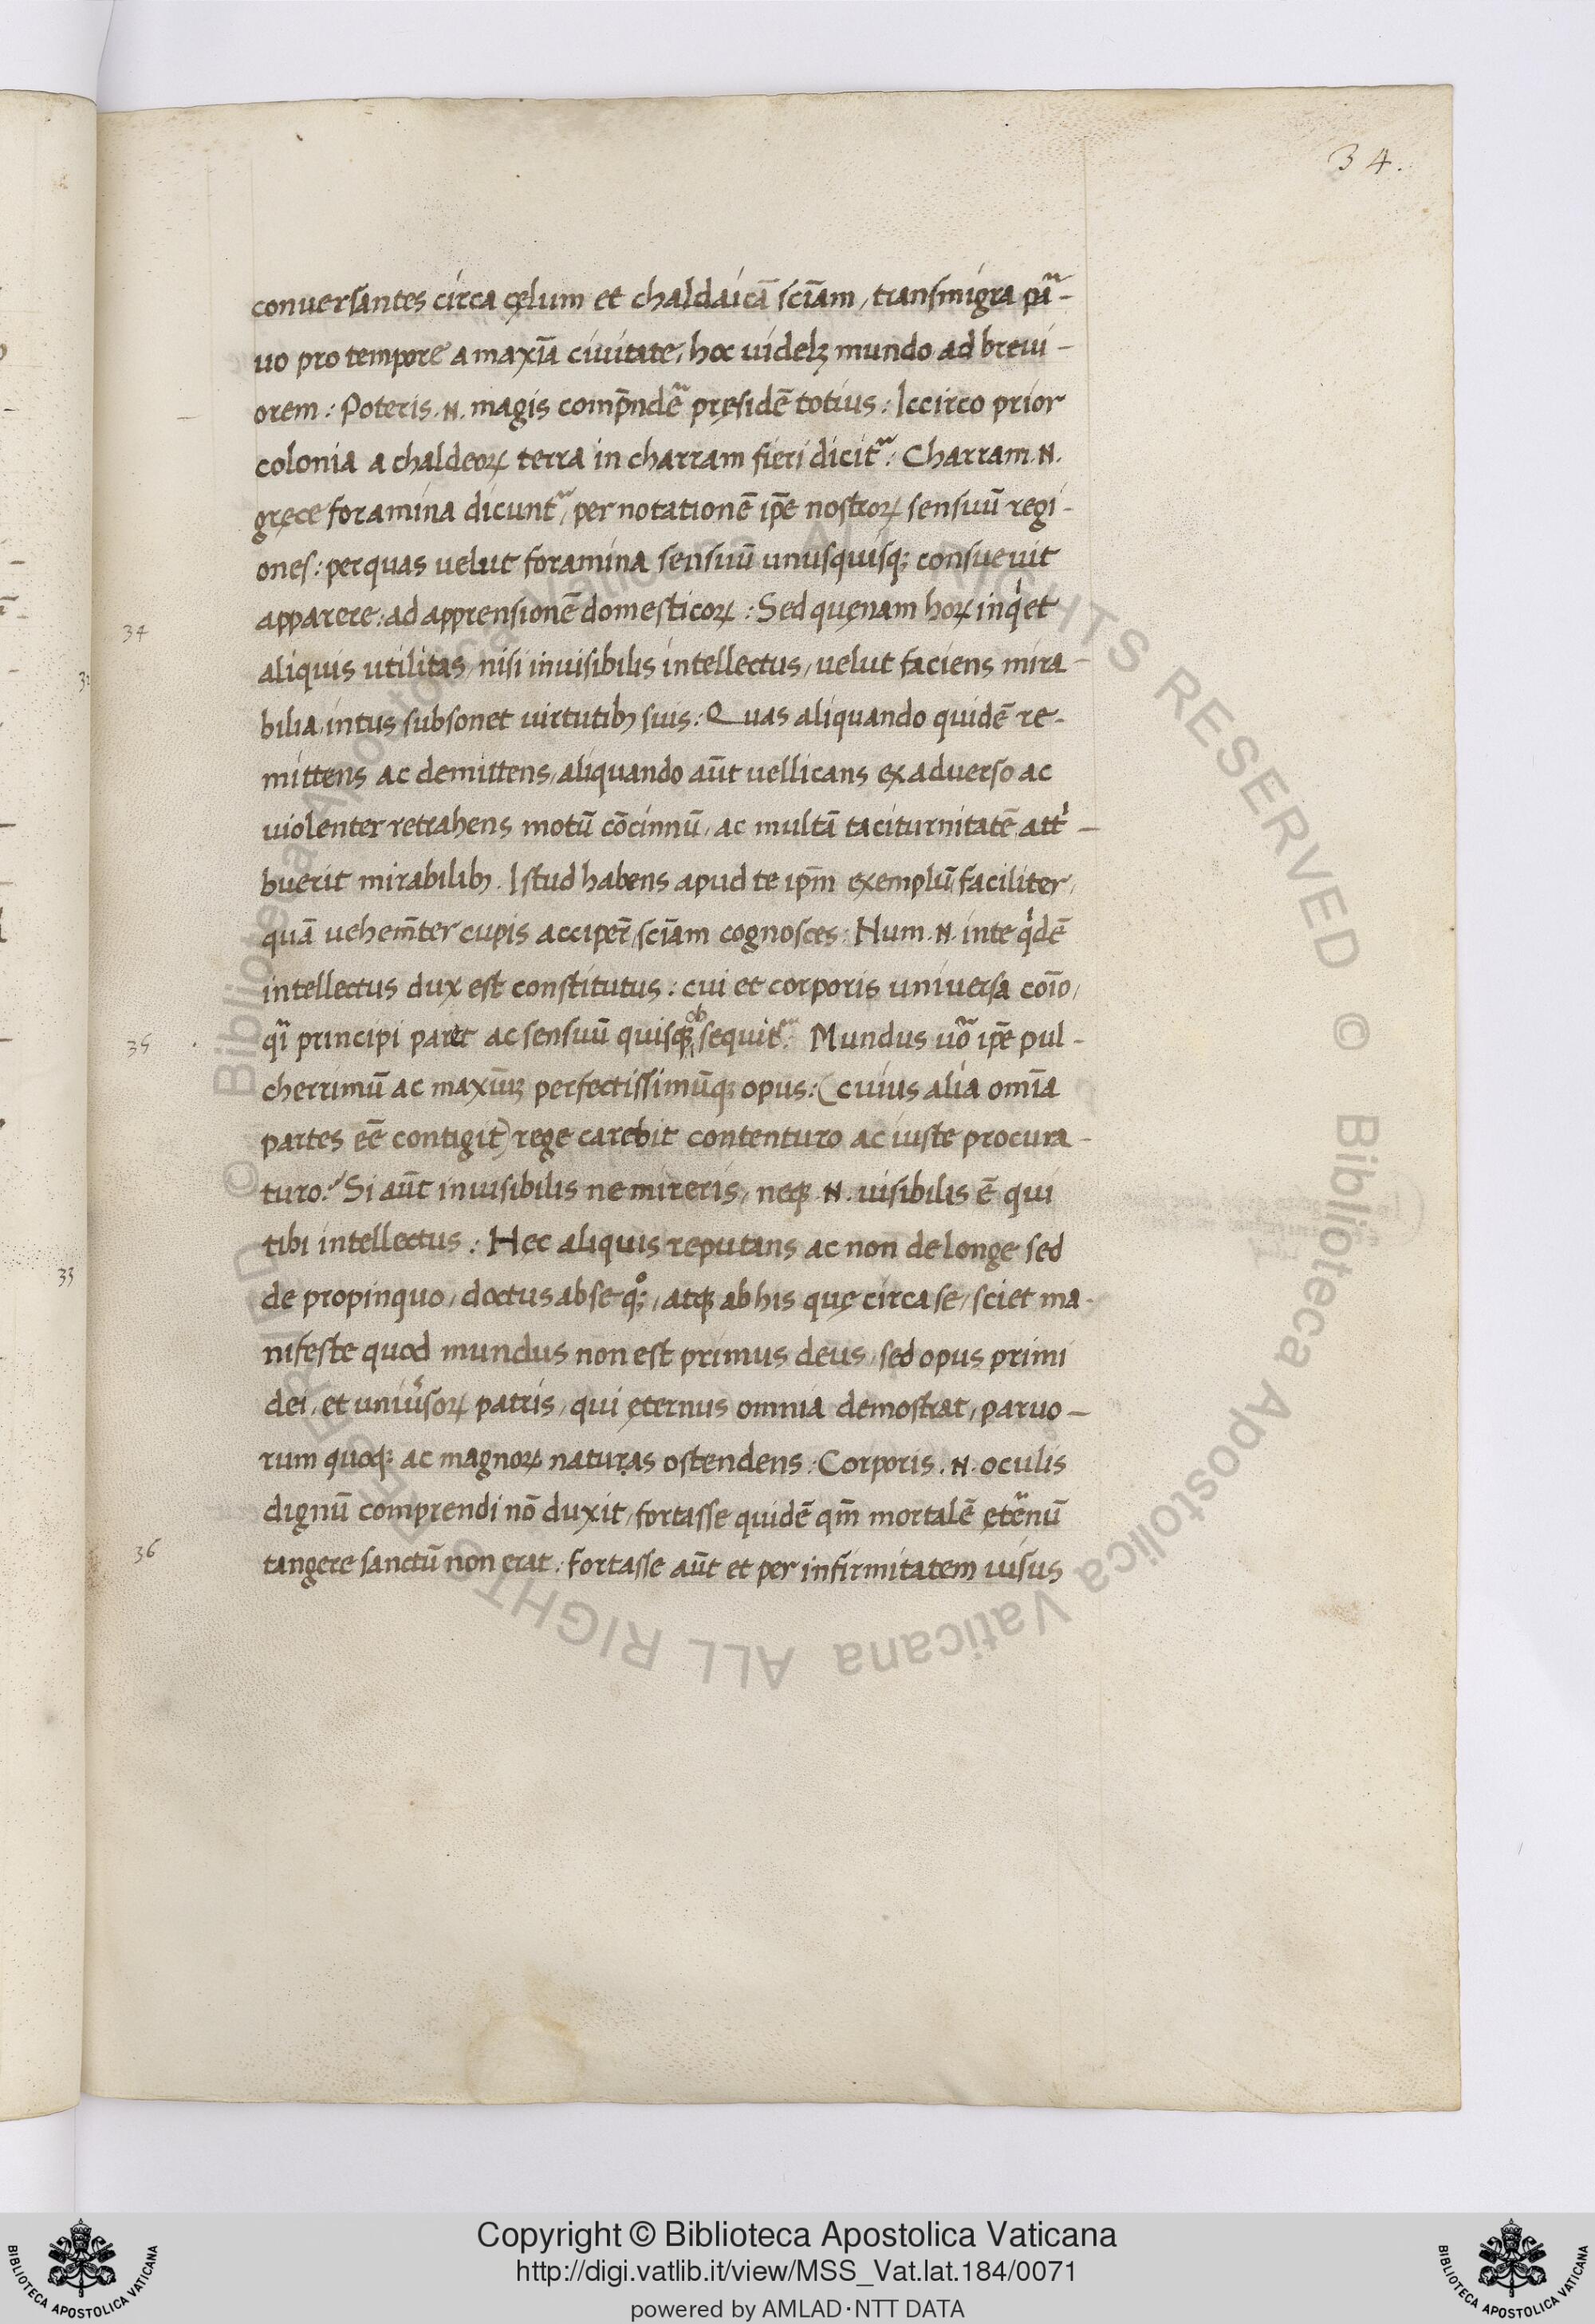 34.
conuersantes circa cęlum et chaldaicā sciam̄, transmigra par̄-
uo pro tempore a maxīa ciuitate, hoc uidelꝫ mundo ad breui-
orem: Poteris .N. magis comp̄ndēr pręsidē totius: Iccirco prior
colonia a chaldeoꝝ terra in charram fieri dicitᷣ: Charram .N.
gręce foramina dicuntᷣ, per notationē ip̄e nostroꝝ sensuū regi-
ones: per quas uelut foramina sensuū unusquisqꝫ consueuit
apparere: ad apprensionē domesticoꝝ: Sed quęnam hoꝝ inqͥet
34
aliquis utilitas, nisi inuisibilis intellectus, uelut faciens mira-
bilia, intus subsonet uirtutibꝫ suis: Quas aliquando quidē re-
mittens ac demittens, aliquando aūt uellicans ex aduerso ac
uiolenter retrahens motū cōcinnū, ac multā taciturnitatē attͥ-
buerit mirabilibꝫ. Istud habens apud te ip̄m exemplū, faciliter,
quā uehem̄ter cupis acciper̄, sciam̄ cognosces: Num .N. in te qͥdē
intellectus dux est constitutus: cui et corporis uniuersa coīo,
35
qī principi paret ac sensuū quisqꝫ obsequitᷣ: Mundus uō ip̄e pul-
cherrimū ac maxūꝫ perfectissimūqꝫ opus: (cuius alia omīa
partes eē contigit) rege carebit contenturo ac iuste procura-
turo? Si aūt inuisibilis ne mireris, neqꝫ .N. uisibilis ē qui
tibi intellectus: Hęc aliquis reputans ac non de longe sed
de propinquo, doctus ab se qͦꝫ, atqꝫ ab his quę circa se, sciet ma-
nifeste quod mundus non est primus deus, sed opus primi
dei, et uniūsoꝝ patris, qui ęternus omnia demostrat, paruo-
rum quoqꝫ ac magnoꝝ naturas ostendens: Corporis .N. oculis
dignū comprendi nō duxit, fortasse quidē qm̄ mortalē ętēnū
36
tangere sanctū non erat: fortasse aūt et per infirmitatem uisus
33
© Biblioteca Apostolica Vaticana ALL RIGHTS RESERVED © Biblioteca Apostolica Vaticana ALL RIGHTS RESERVED
Copyright © Biblioteca Apostolica Vaticana
http://digi.vatlib.it/view/MSS_Vat.lat.184/0071
powered by AMLAD·NTT DATA
BIBLIOTECA APOSTOLICA VATICANA
BIBLIOTECA APOSTOLICA VATICANA